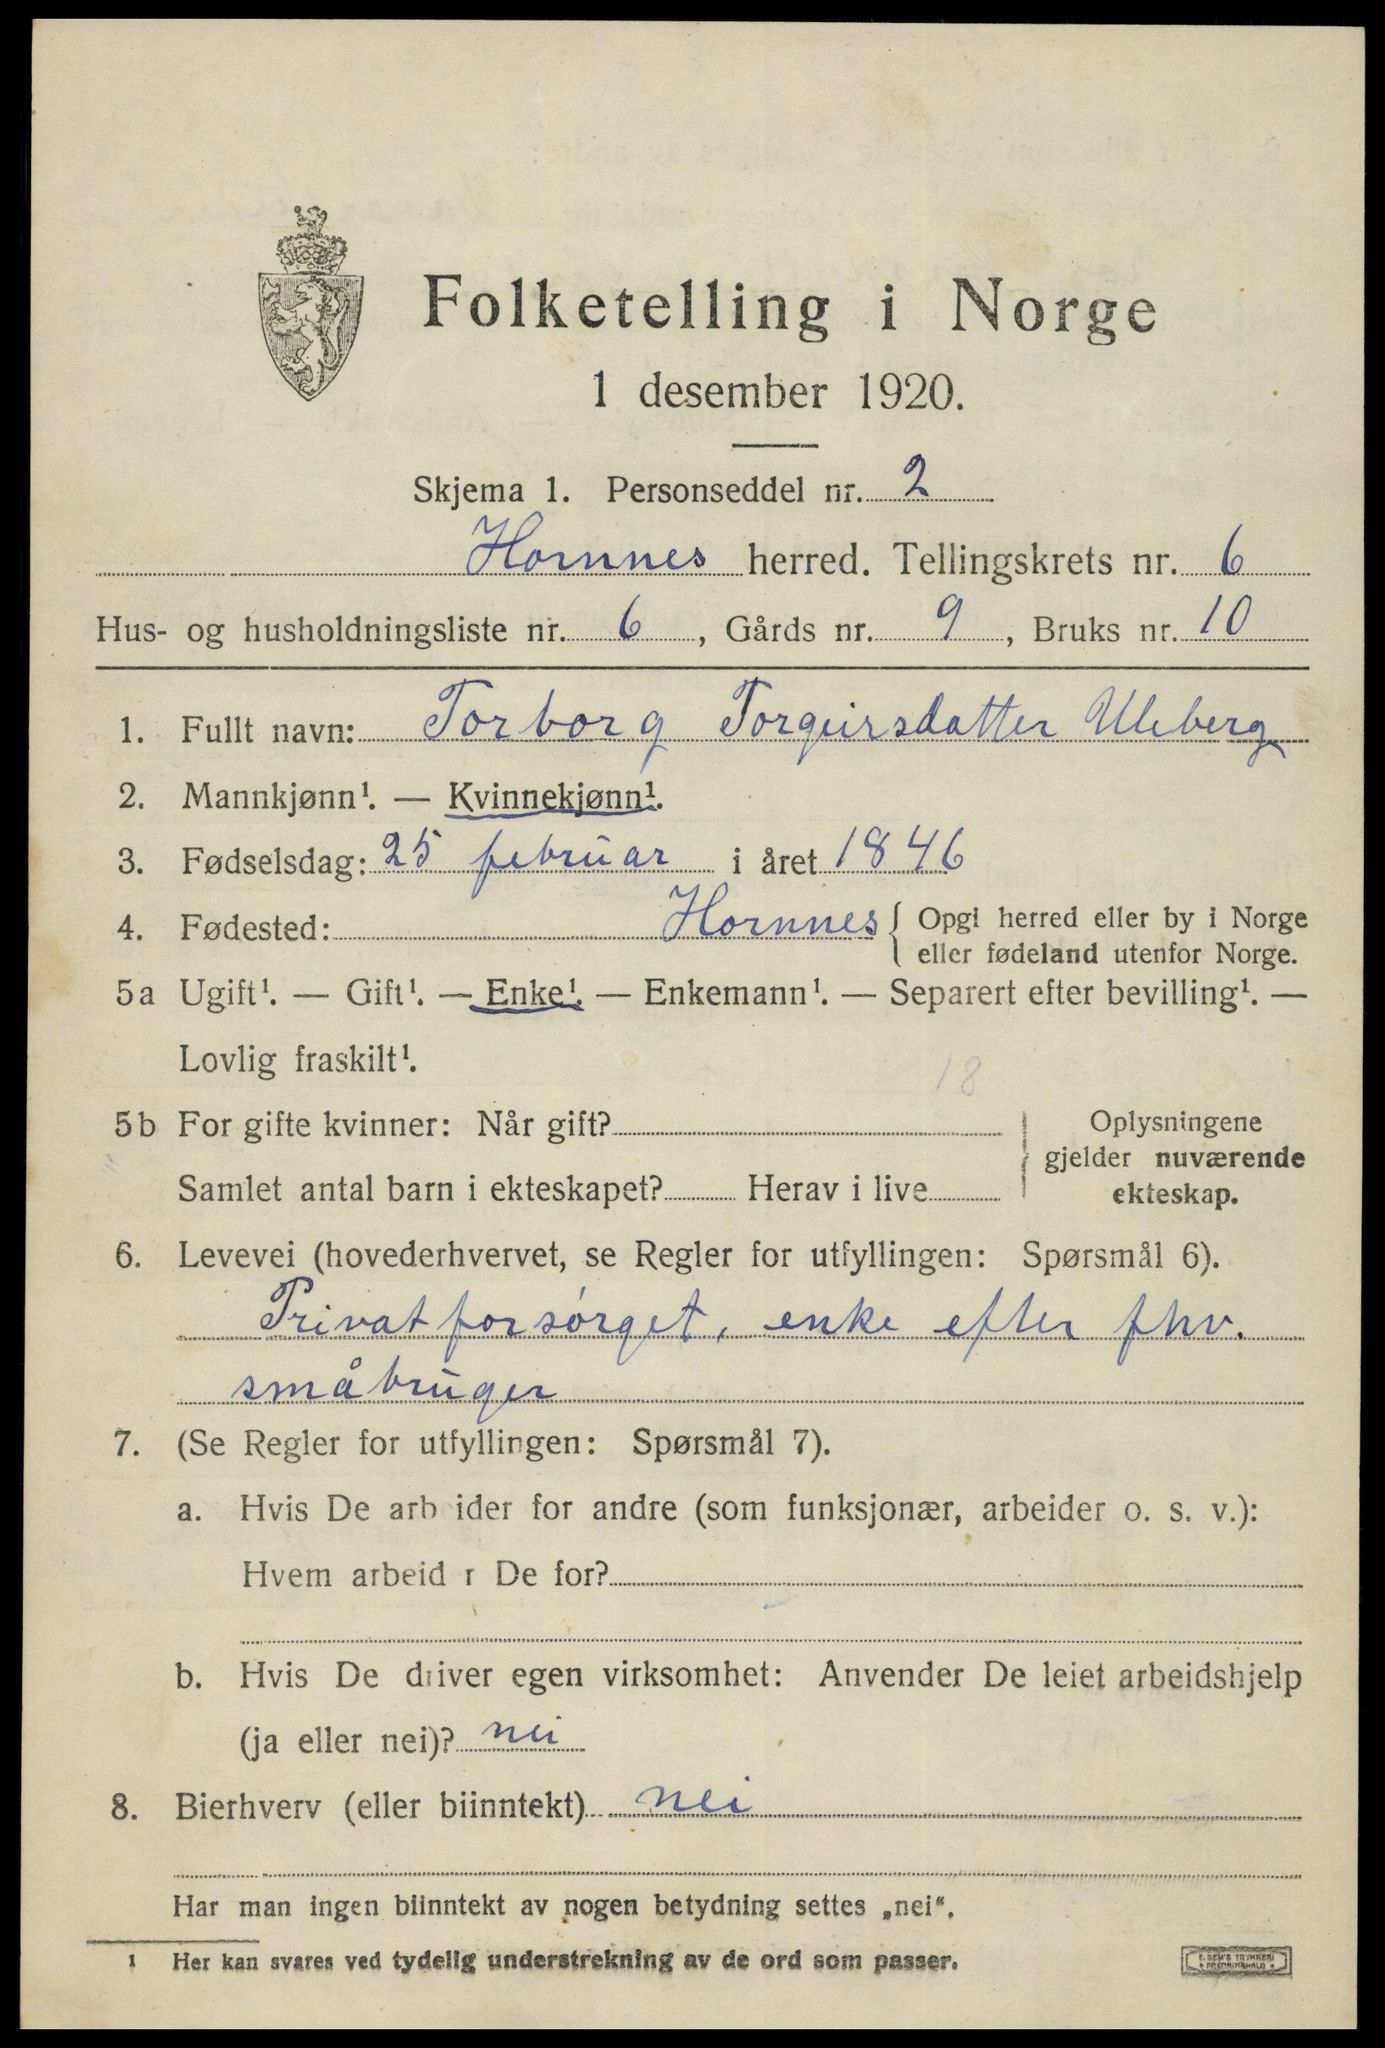 Folketelling i Norge
1 desember 1920.
Skjema 1. Personseddel nr. 2
Hornnes herred. Tellingskrets nr. 6
Hus- og husholdningsliste nr. 6, Gårds nr. 9, Bruks nr. 10
1. Fullt navn: Torborg Torgeirsdatter Uleberg
2. Mannkjønn¹. — Kvinnekjønn¹.
3. Fødselsdag: 25 februar i året 1846
4. Fødested: Hornnes { Opgi herred eller by i Norge
eller fødeland utenfor Norge.
5a Ugift¹. — Gift¹. — Enke¹. — Enkemann¹. — Separert efter bevilling¹. —
Lovlig fraskilt¹.
18
5b For gifte kvinner: Når gift? Oplysningene
gjelder nuværende
Samlet antal barn i ekteskapet? Herav i live ekteskap.
6. Levevei (hovederhvervet, se Regler for utfyllingen: Spørsmål 6).
Privat forsørget, enke efter fhv.
småbruger
7. (Se Regler for utfyllingen: Spørsmål 7).
a. Hvis De arb ider for andre (som funksjonær, arbeider o. s. v.):
Hvem arbeid r De for?
b. Hvis De driver egen virksomhet: Anvender De leiet arbeidshjelp
(ja eller nei)? nei
8. Bierhverv (eller biinntekt) nei
Har man ingen biinntekt av nogen betydning settes „nei“.
1 Her kan svares ved tydelig understrekning av de ord som passer.